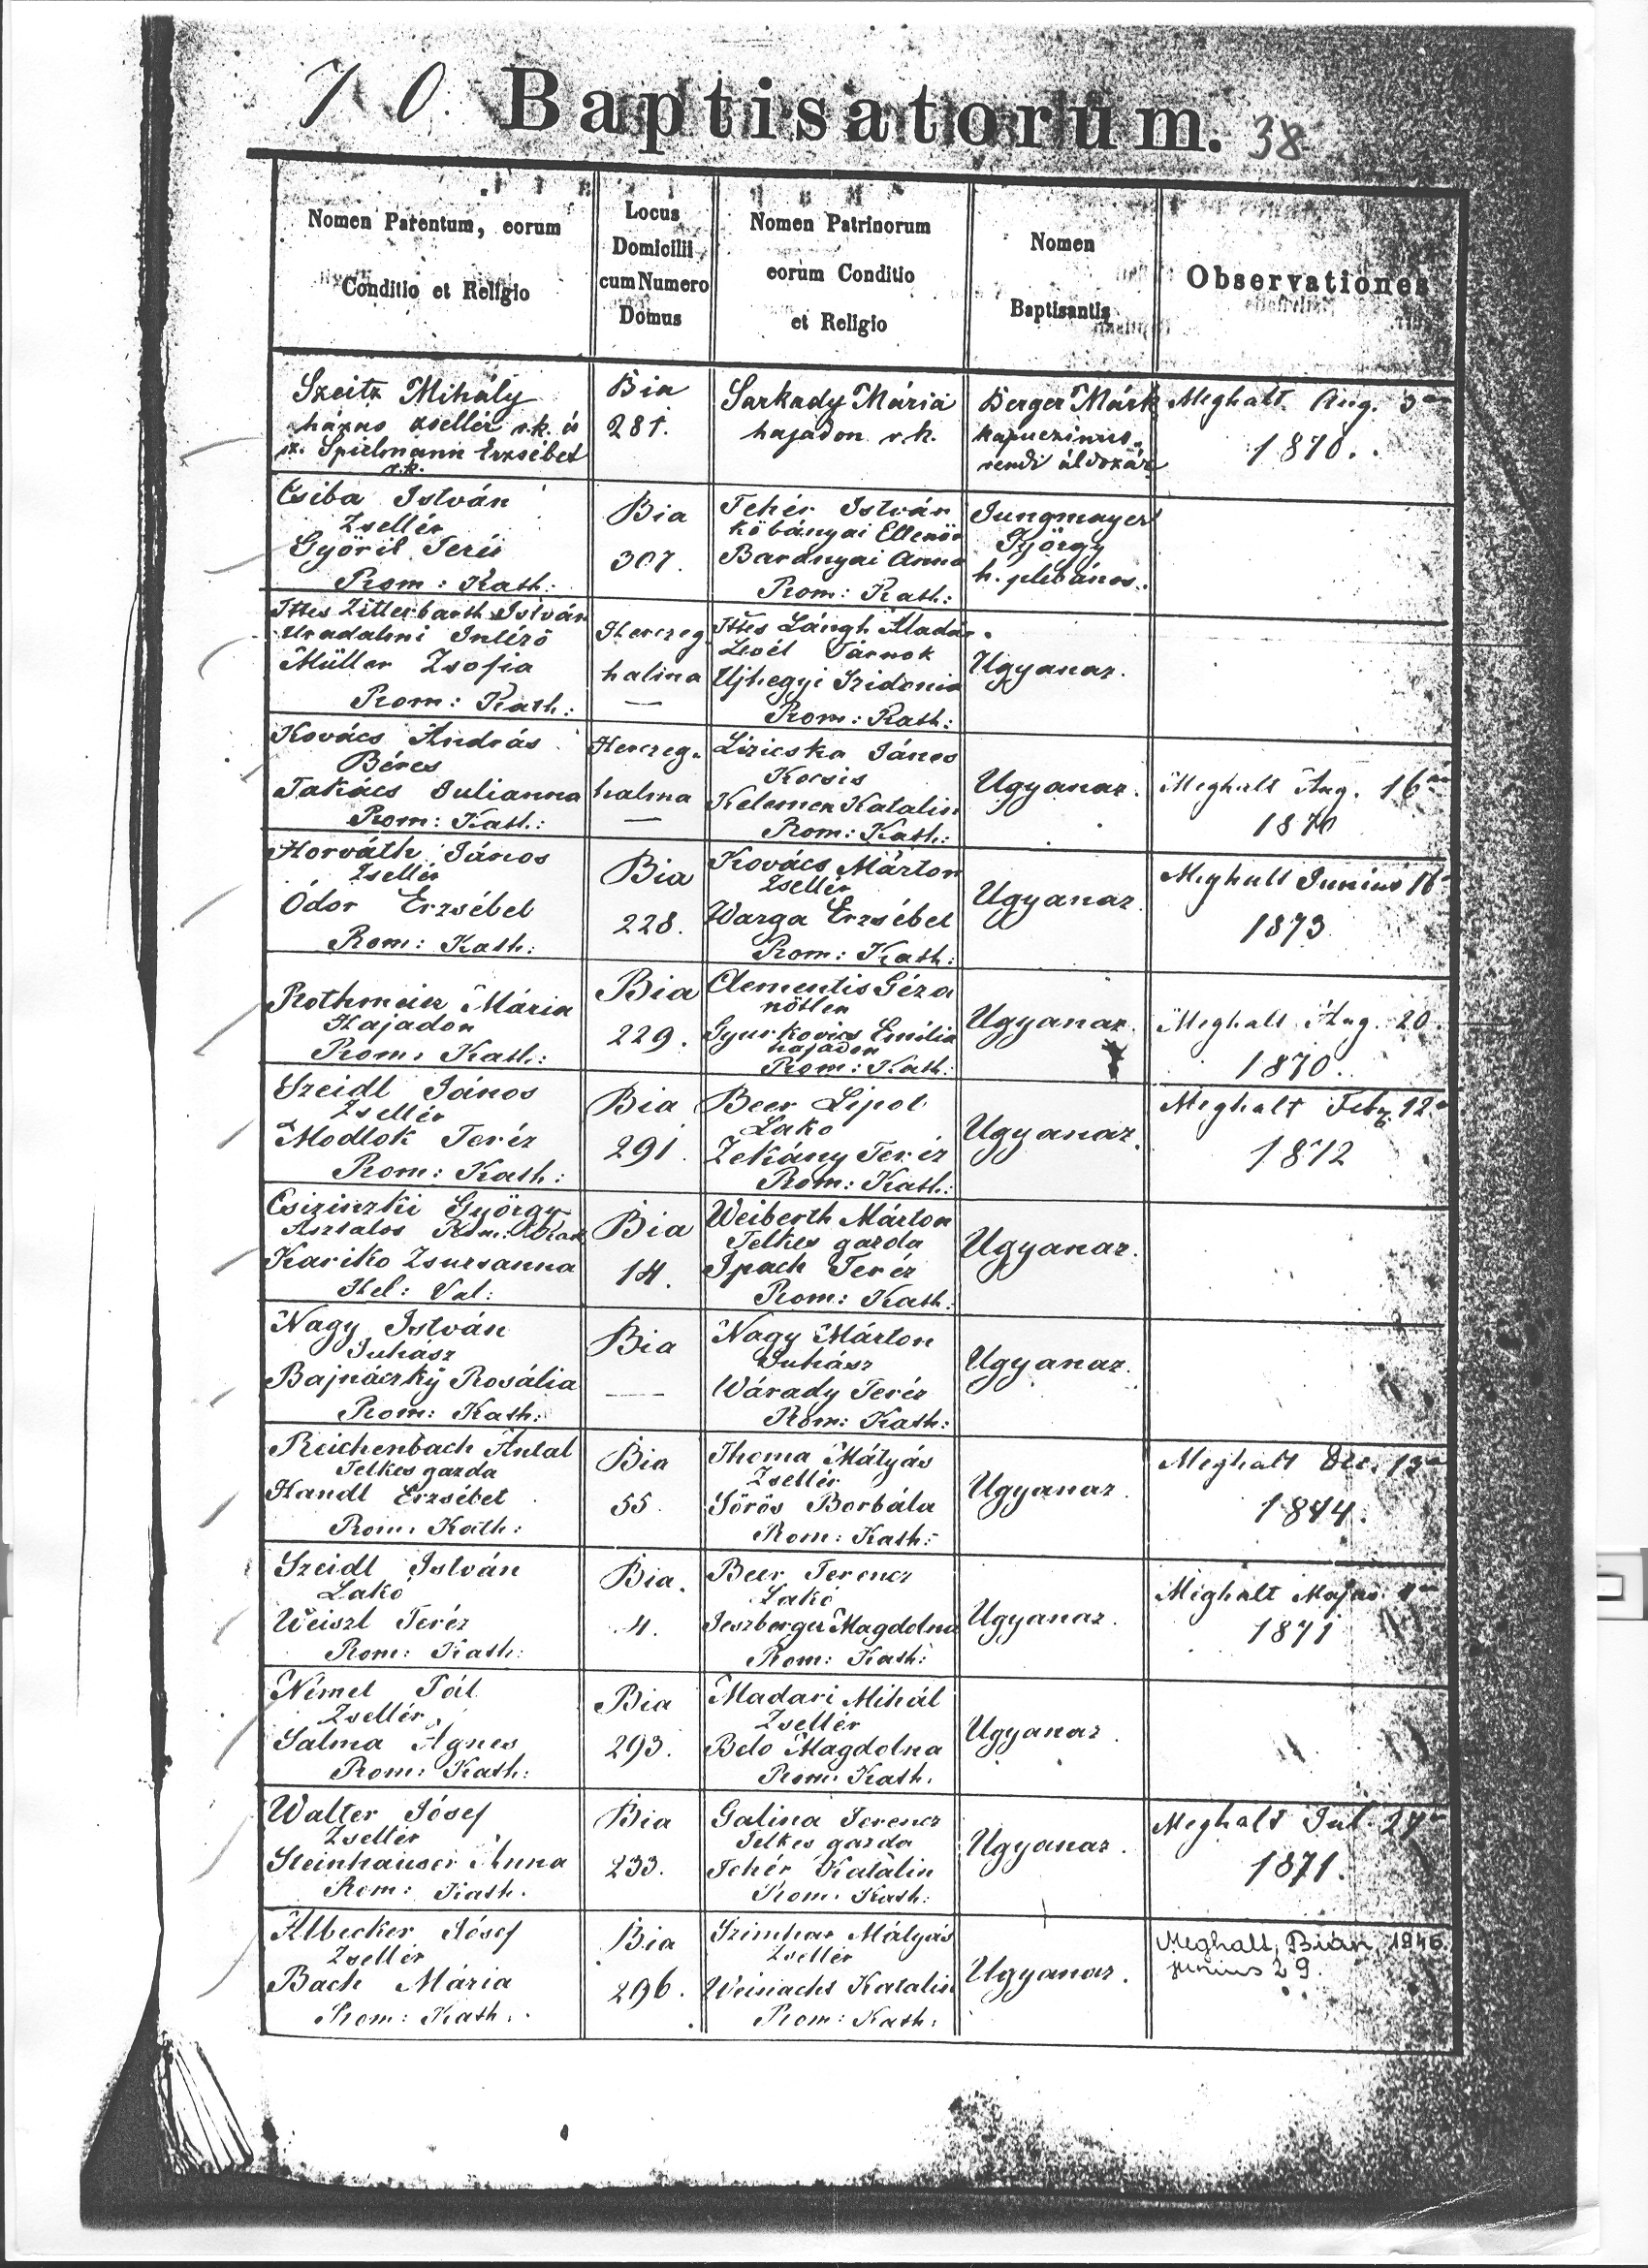 70. Baptisatorum. 38
Nomen Parentum, eorum
Conditio et Religio
Locus
Domicilii
cum Numero
Domus
Nomen Patrinorum
eorum Conditio
et Religio
Nomen
Baptisantis
Observationes
Szeitz Mihály
házas zsellér r.k. és
sz. Spielmann Erzsébet
r.k.
Bia
281.
Sarkady Mária
hajadon r.k.
Berger Márk
kapuczinus-
rendi áldozár
Meghalt Aug.
1870.
Csiba István
Zsellér
Györil Terü
Rom: Kath:
Bia
307.
Fehér István
köbányai Ellenör
Baranyai Anna
Rom: Kath:
Jungmayer
György
h. plébános.
Ttes Zitterbarth István
Uradalmi Intézö
Müller Zsofia
Rom: Kath:
Herczeg
halma
—
Ttes Lángh Aladár
Tárnok
Ujhegyi Szidonia
Rom: Kath:
Ugyanaz.
Kovács András
Béres
Takács Julianna
Rom: Kath:
Herczeg-
halma
—
Lizicska János
Kocsis
Kelemen Katalin
Rom: Kath:
Ugyanaz.
Meghalt Aug. 16án
1870
Horváth János
Zsellér
Ódor Erzsébet
Rom: Kath:
Bia
228.
Kovács Márton
Zsellér
Warga Erzsébet
Rom: Kath:
Ugyanaz
Meghalt Junius
1873
Mária
Hajadon
Rom: Kath:
Bia
229.
Clementis Géza
nötlen
Gyurkovics Emilia
hajadon
Rom: Kath:
Ugyanaz.
Meghalt Aug. 20
1870.
Szeidl János
Zsellér
Modlok Teréz
Rom: Kath:
Bia
291.
Beer Lipot
Lako
Zekány Teréz
Rom: Kath:
Ugyanaz.
Meghalt Feb. 12
1872
Csizinzki György
Asztalos Rom: Kath
Kariko Zsuzsanna
Hel: Val:
Bia
14.
Weiberth Márton
Telkes gazda
Ipach Teréz
Rom: Kath:
Ugyanaz.
Nagy István
Juhász
Bajnáczky Rosália
Rom: Kath:
Bia
—
Nagy Márton
Juhász
Várady Teréz
Rom: Kath:
Ugyanaz.
Reichenbach Antal
Telkes gazda
Handl Erzsébet
Rom: Kath:
Bia
55.
Thoma Mátyás
Zsellér
Sörös Borbála
Rom: Kath:
Ugyanaz.
Meghalt Dec.
Szeidl István
Lakó
Weiszl Teréz
Rom: Kath:
Bia.
4.
Beer Ferencz
Lakó
Jeszberger Magdolna
Rom: Kath:
Ugyanaz.
Meghalt Majus
1871
Német Pál
Zsellér
Salma Agnes
Rom: Kath:
Bia
293.
Madari Mihál
Zsellér
Belo Magdolna
Rom: Kath.
Ugyanaz.
Walter Jósef
Zsellér
Steinhauser Anna
Rom: Kath.
Bia
233.
Galina Ferencz
Telkes gazda
Fehér Katalin
Rom: Kath:
Ugyanaz.
Meghalt Jul. 27
1871.
Albecker Jósef
Zsellér
Bach Mária
Rom: Kath.
Bia
296.
Szimhar Mátyás
Zsellér
Weinacht Katalin
Rom: Kath:
Ugyanaz.
Meghalt, Bián, 1946.
junius 29.